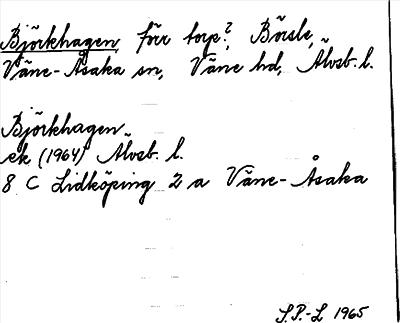 Björkhagen förr torp?, Börsle,
Väne-Åsaka sn, Väne hd, Älvsb. l.
Björkhagen
ek (1964) Älvsb. l.
8 C Lidköping 2 a Väne-Åsaka
S.P.-L 1965